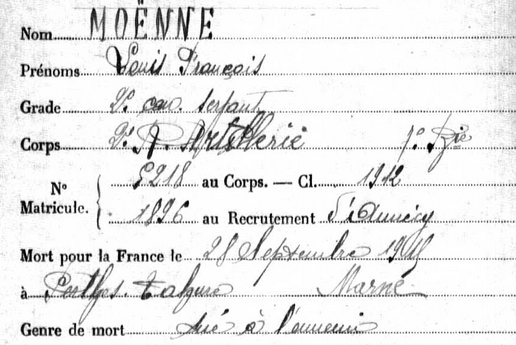 Nom MOËNNE
Prénoms Louis François
Grade 2e can. servant
Corps 2e R. Artillerie 1e Bie
No Matricule. 5218 au Corps. — Cl. 1912
1896 au Recrutement d'Annecy
Mort pour la France le 28 Septembre 1915
à Perthes Tahure Marne
Genre de mort tué à l'ennemi